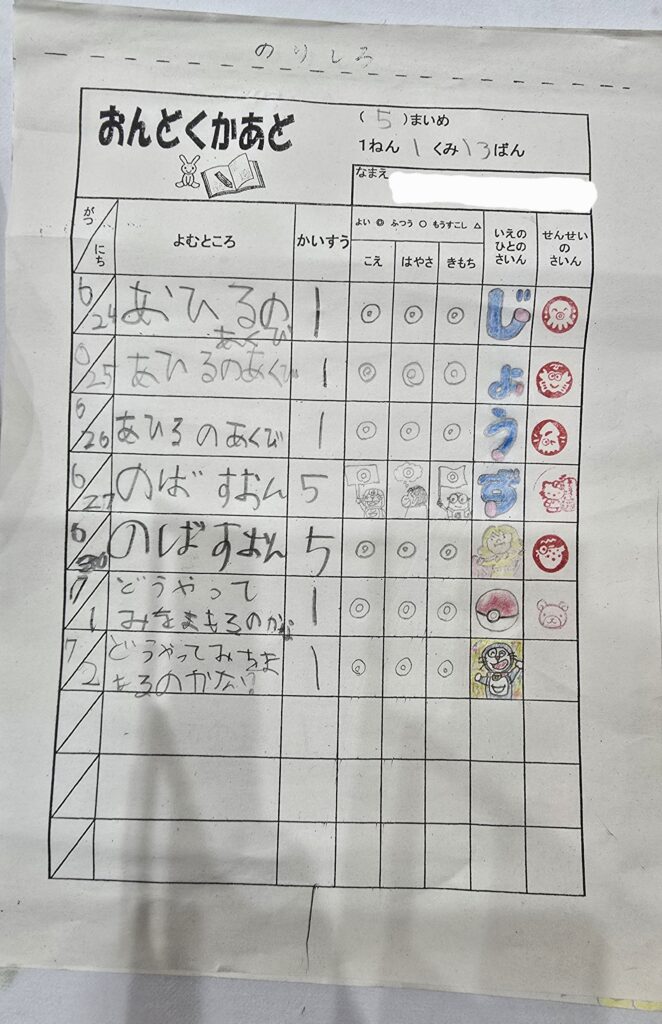 のりしろ
おんどくかあど
( 5 )まいめ
1ねん 1 くみ 13 ばん
なまえ
がつ/にち
よむところ
かいすう
よい ◎ ふつう ○ もうすこし △
こえ
はやさ
きもち
いえの
ひとの
さいん
せんせい
の
さいん
6/24 あひるの
あくび
1 ◎ ◎ ◎ じ
6/25 あひるのあくび 1 ◎ ◎ ◎ よ
6/26 あひるのあくび 1 ◎ ◎ ◎ う
6/27 のばすおん 5 ◎ ◎ ◎ ず
6/30 のばすおん 5 ◎ ◎ ◎
7/1 どうやって
みをまもるのかな
1 ◎ ◎ ◎
7/2 どうやってみをま
もるのかな? 1 ◎ ◎ ◎